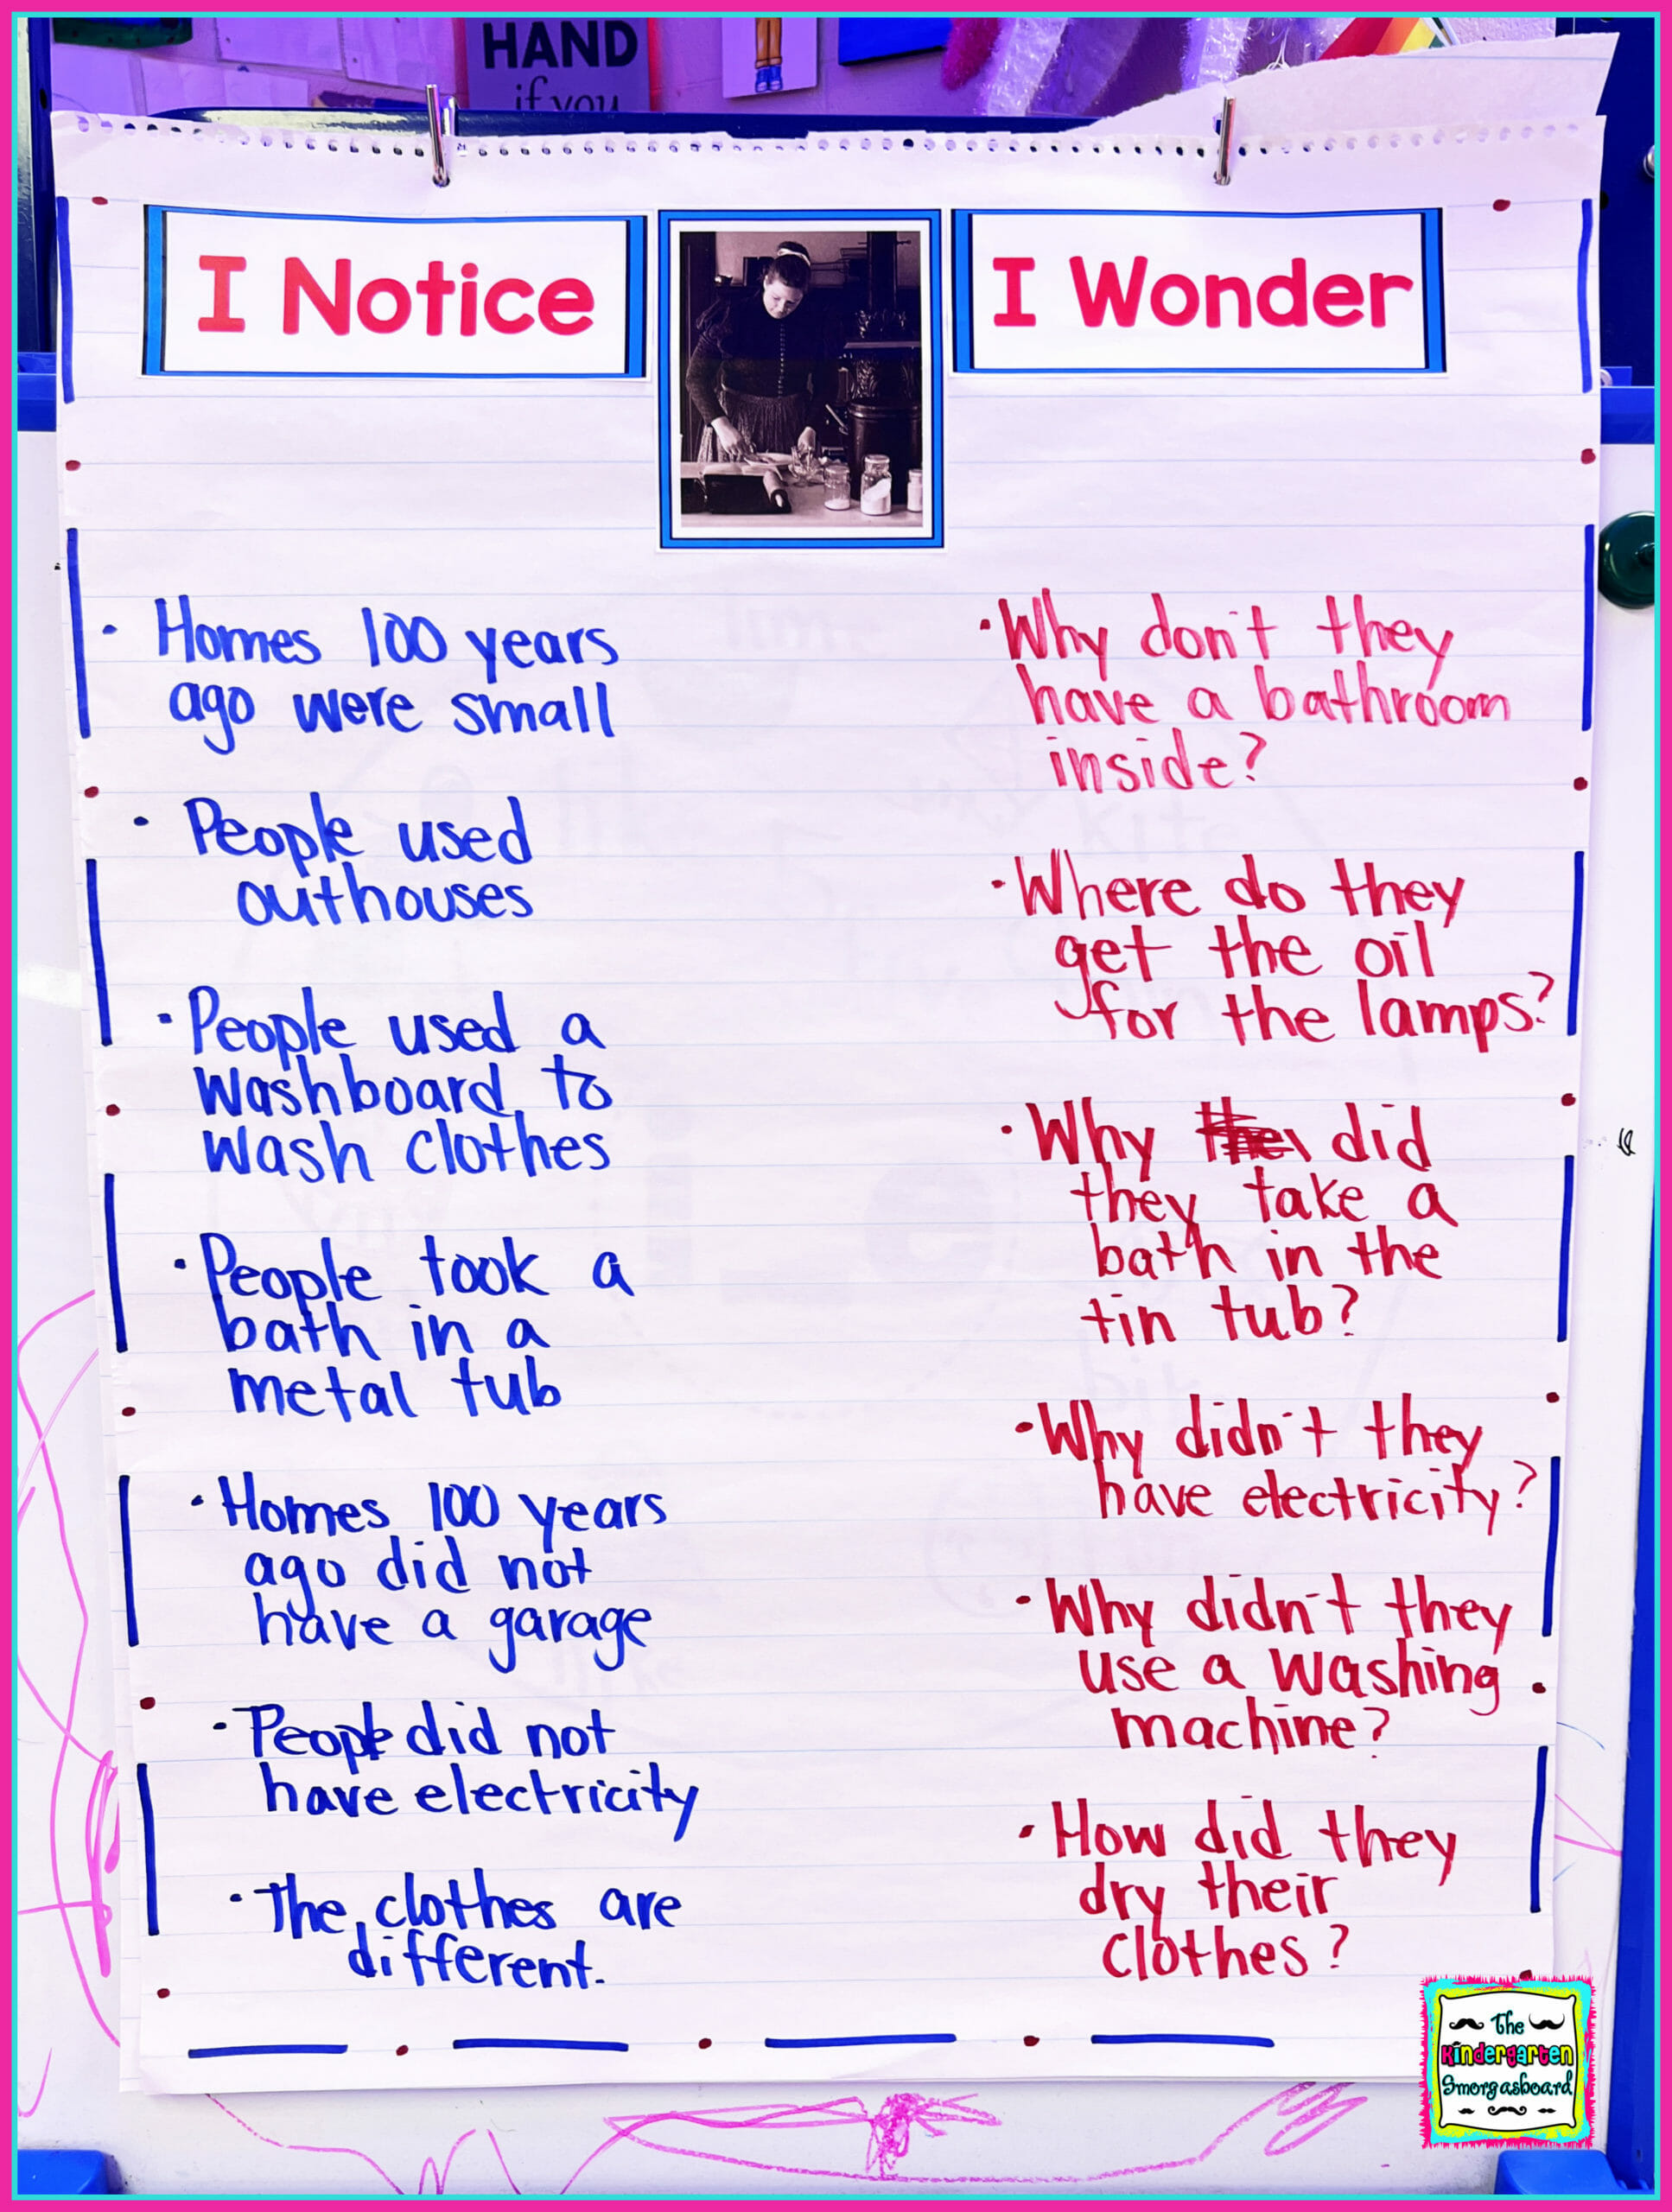 HAND
if you
I Notice
I Wonder
· Homes 100 years
ago were small
· People used
outhouses
· People used a
washboard to
wash clothes
· People took a
bath in a
metal tub
· Homes 100 years
ago did not
have a garage
· People did not
have electricity
· The clothes are
different.
· Why don't they
have a bathroom
inside?
· Where do they
get the oil
for the lamps?
· Why did
they take a
bath in the
tin tub?
· Why didn't they
have electricity?
· Why didn't they
use a washing
machine?
· How did they
dry their
clothes?
The
Kindergarten
Smorgasboard